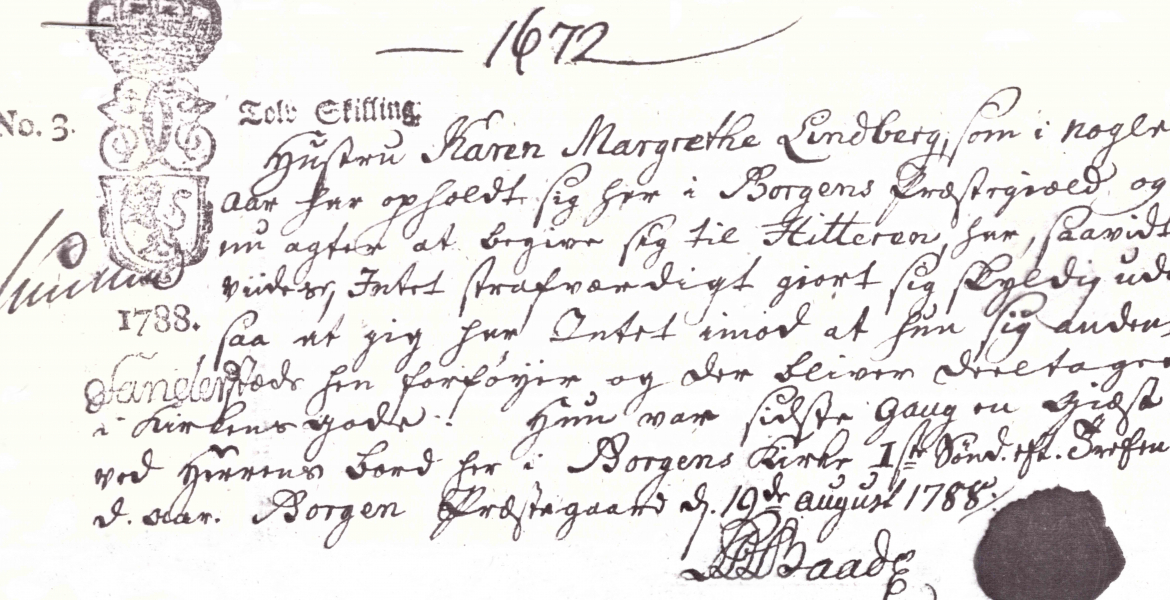 1672
No. 3.
Tolv Skilling
Hustru Karen Margrethe Lindberg, som i nogle
aar har opholdt sig her i Borgens Præstegiæld og
nu agter at begive sig til Hitteren, har, saavidt
viides, Intet strafværdigt giort sig skyldig ud
1788.
saa at jeg har Intet imod at hun sig anden
stæds hen forføyer og der bliver deeltager
i Kirkens gode! Hun var sidste Gang en Giæst
ved Herrens Bord her i Borgens Kirke 1ste Sönd. eft. Trefen
d. aar. Borgen Præstegaard d. 19de august 1788.
Baade